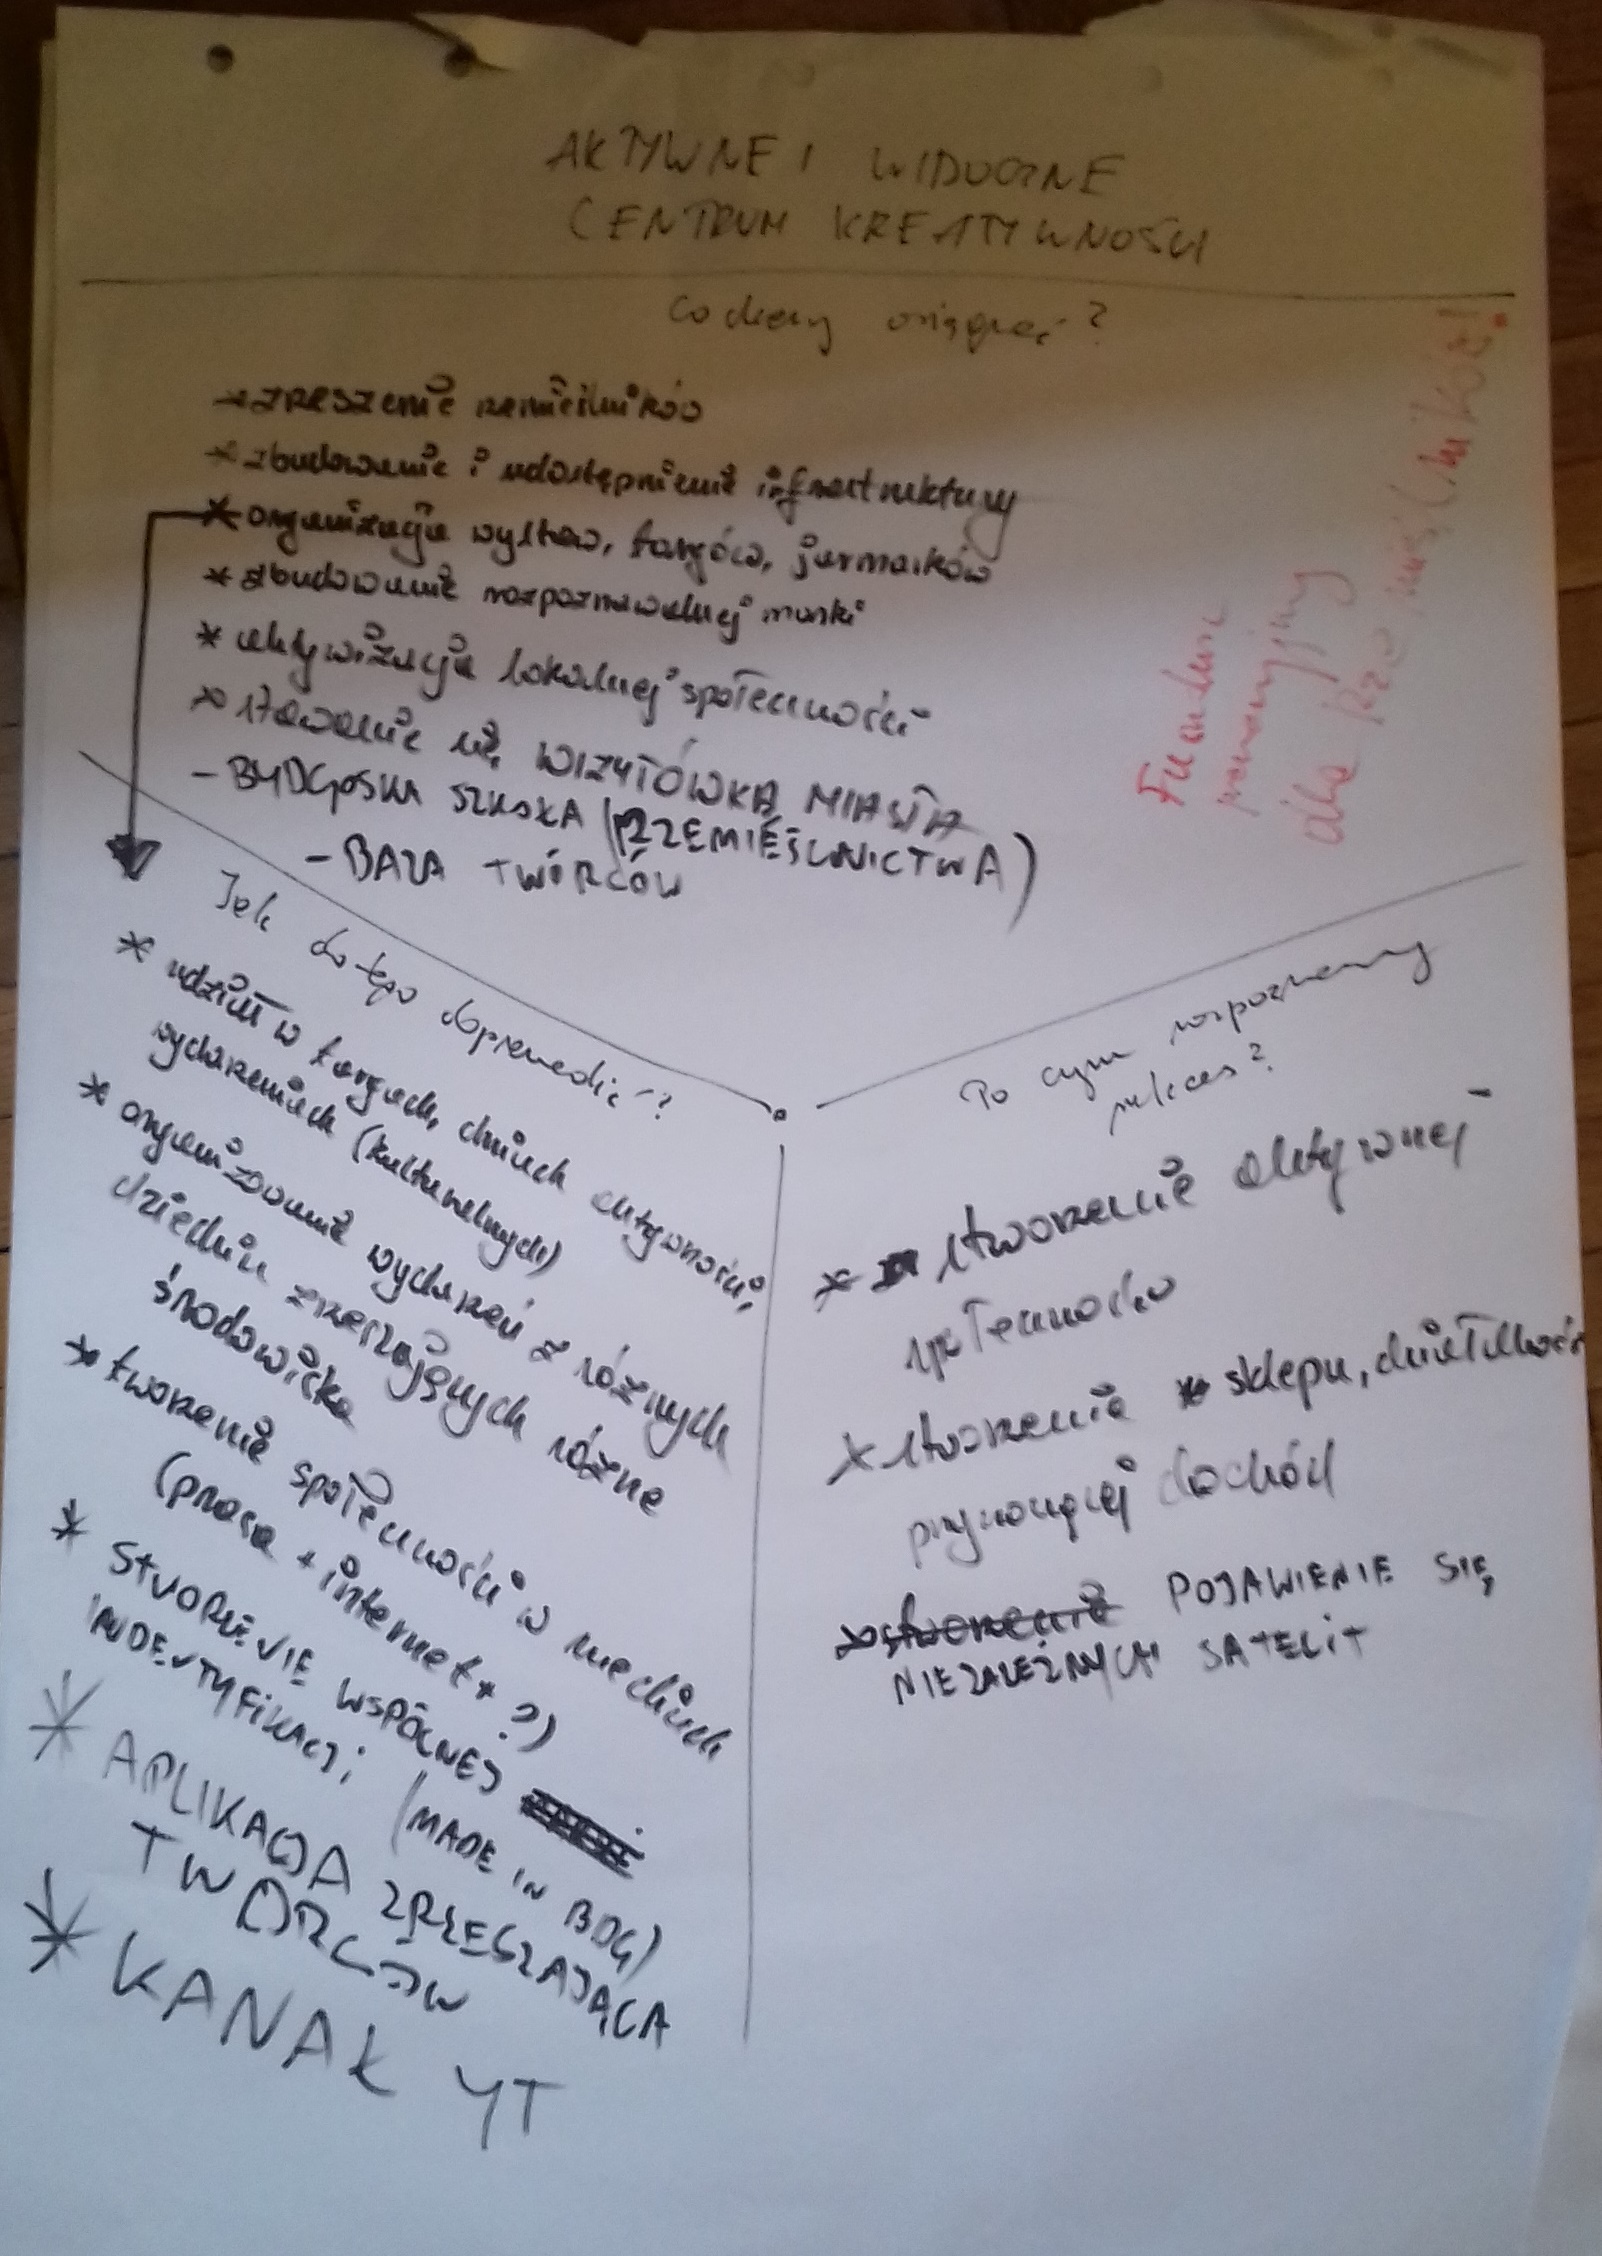 AKTYWNE I WIDOCZNE
CENTRUM KREATYWNOŚCI
Co chcemy osiągnąć?
→ zrzeszenie rzemieślników
* zbudowanie i udostępnienie infrastruktury
* organizacja wystaw, targów, jarmarków
* zbudowanie rozpoznawalnej marki
* aktywizacja lokalnej społeczności
* stawanie się WIZYTÓWKĄ MIASTA
- BYDGOSKA SZKOŁA (RZEMIEŚLNICTWA)
- BAZA TWÓRCÓW
Fundusz
promocyjny
dla Rzemieślników!
Jak do tego doprowadzić?
* udział w targach, dniach aktywności,
wydarzeniach (kulturalnych)
* organizowanie wydarzeń z różnych
dziedzin zrzeszających różne
środowiska
* tworzenie społeczności w mediach
(prasa + internet + ?)
* STWORZENIE WSPÓLNEJ
INDENTYFIKACJI (MADE IN BDG)
* APLIKACJA ZRZESZAJĄCA
TWÓRCÓW
* KANAŁ YT
Po czym rozpoznamy
sukces?
* stworzenie aktywnej
społeczności
* stworzenie sklepu, działalności
przynoszącej dochód
stworzenie POJAWIENIE SIĘ
NIEZALEŻNYCH SATELIT